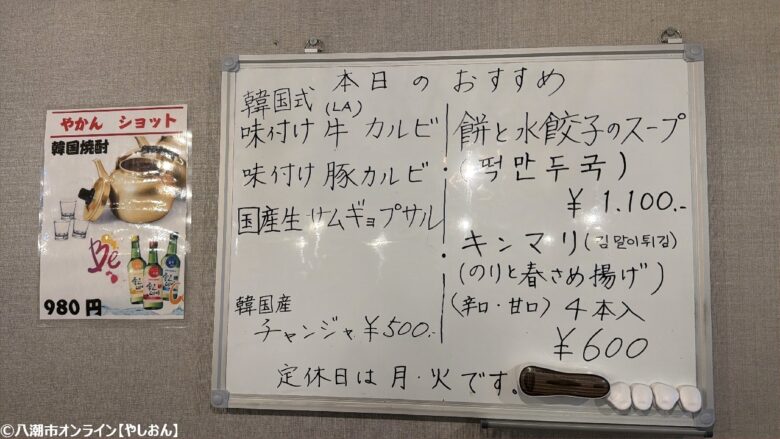 やかん ショット
韓国焼酎
Be
980円
本日のおすすめ
韓国式(LA)
味付け牛カルビ
味付け豚カルビ
国産生サムギョプサル
韓国産
チャンジャ ¥500.-
・餅と水餃子のスープ
(떡만두국)
¥1.100.-
・キンマリ(김말이튀김)
(のりと春さめ揚げ)
(辛口・甘口) 4本入
¥600
定休日は月・火です。
©八潮市オンライン【やしおん】